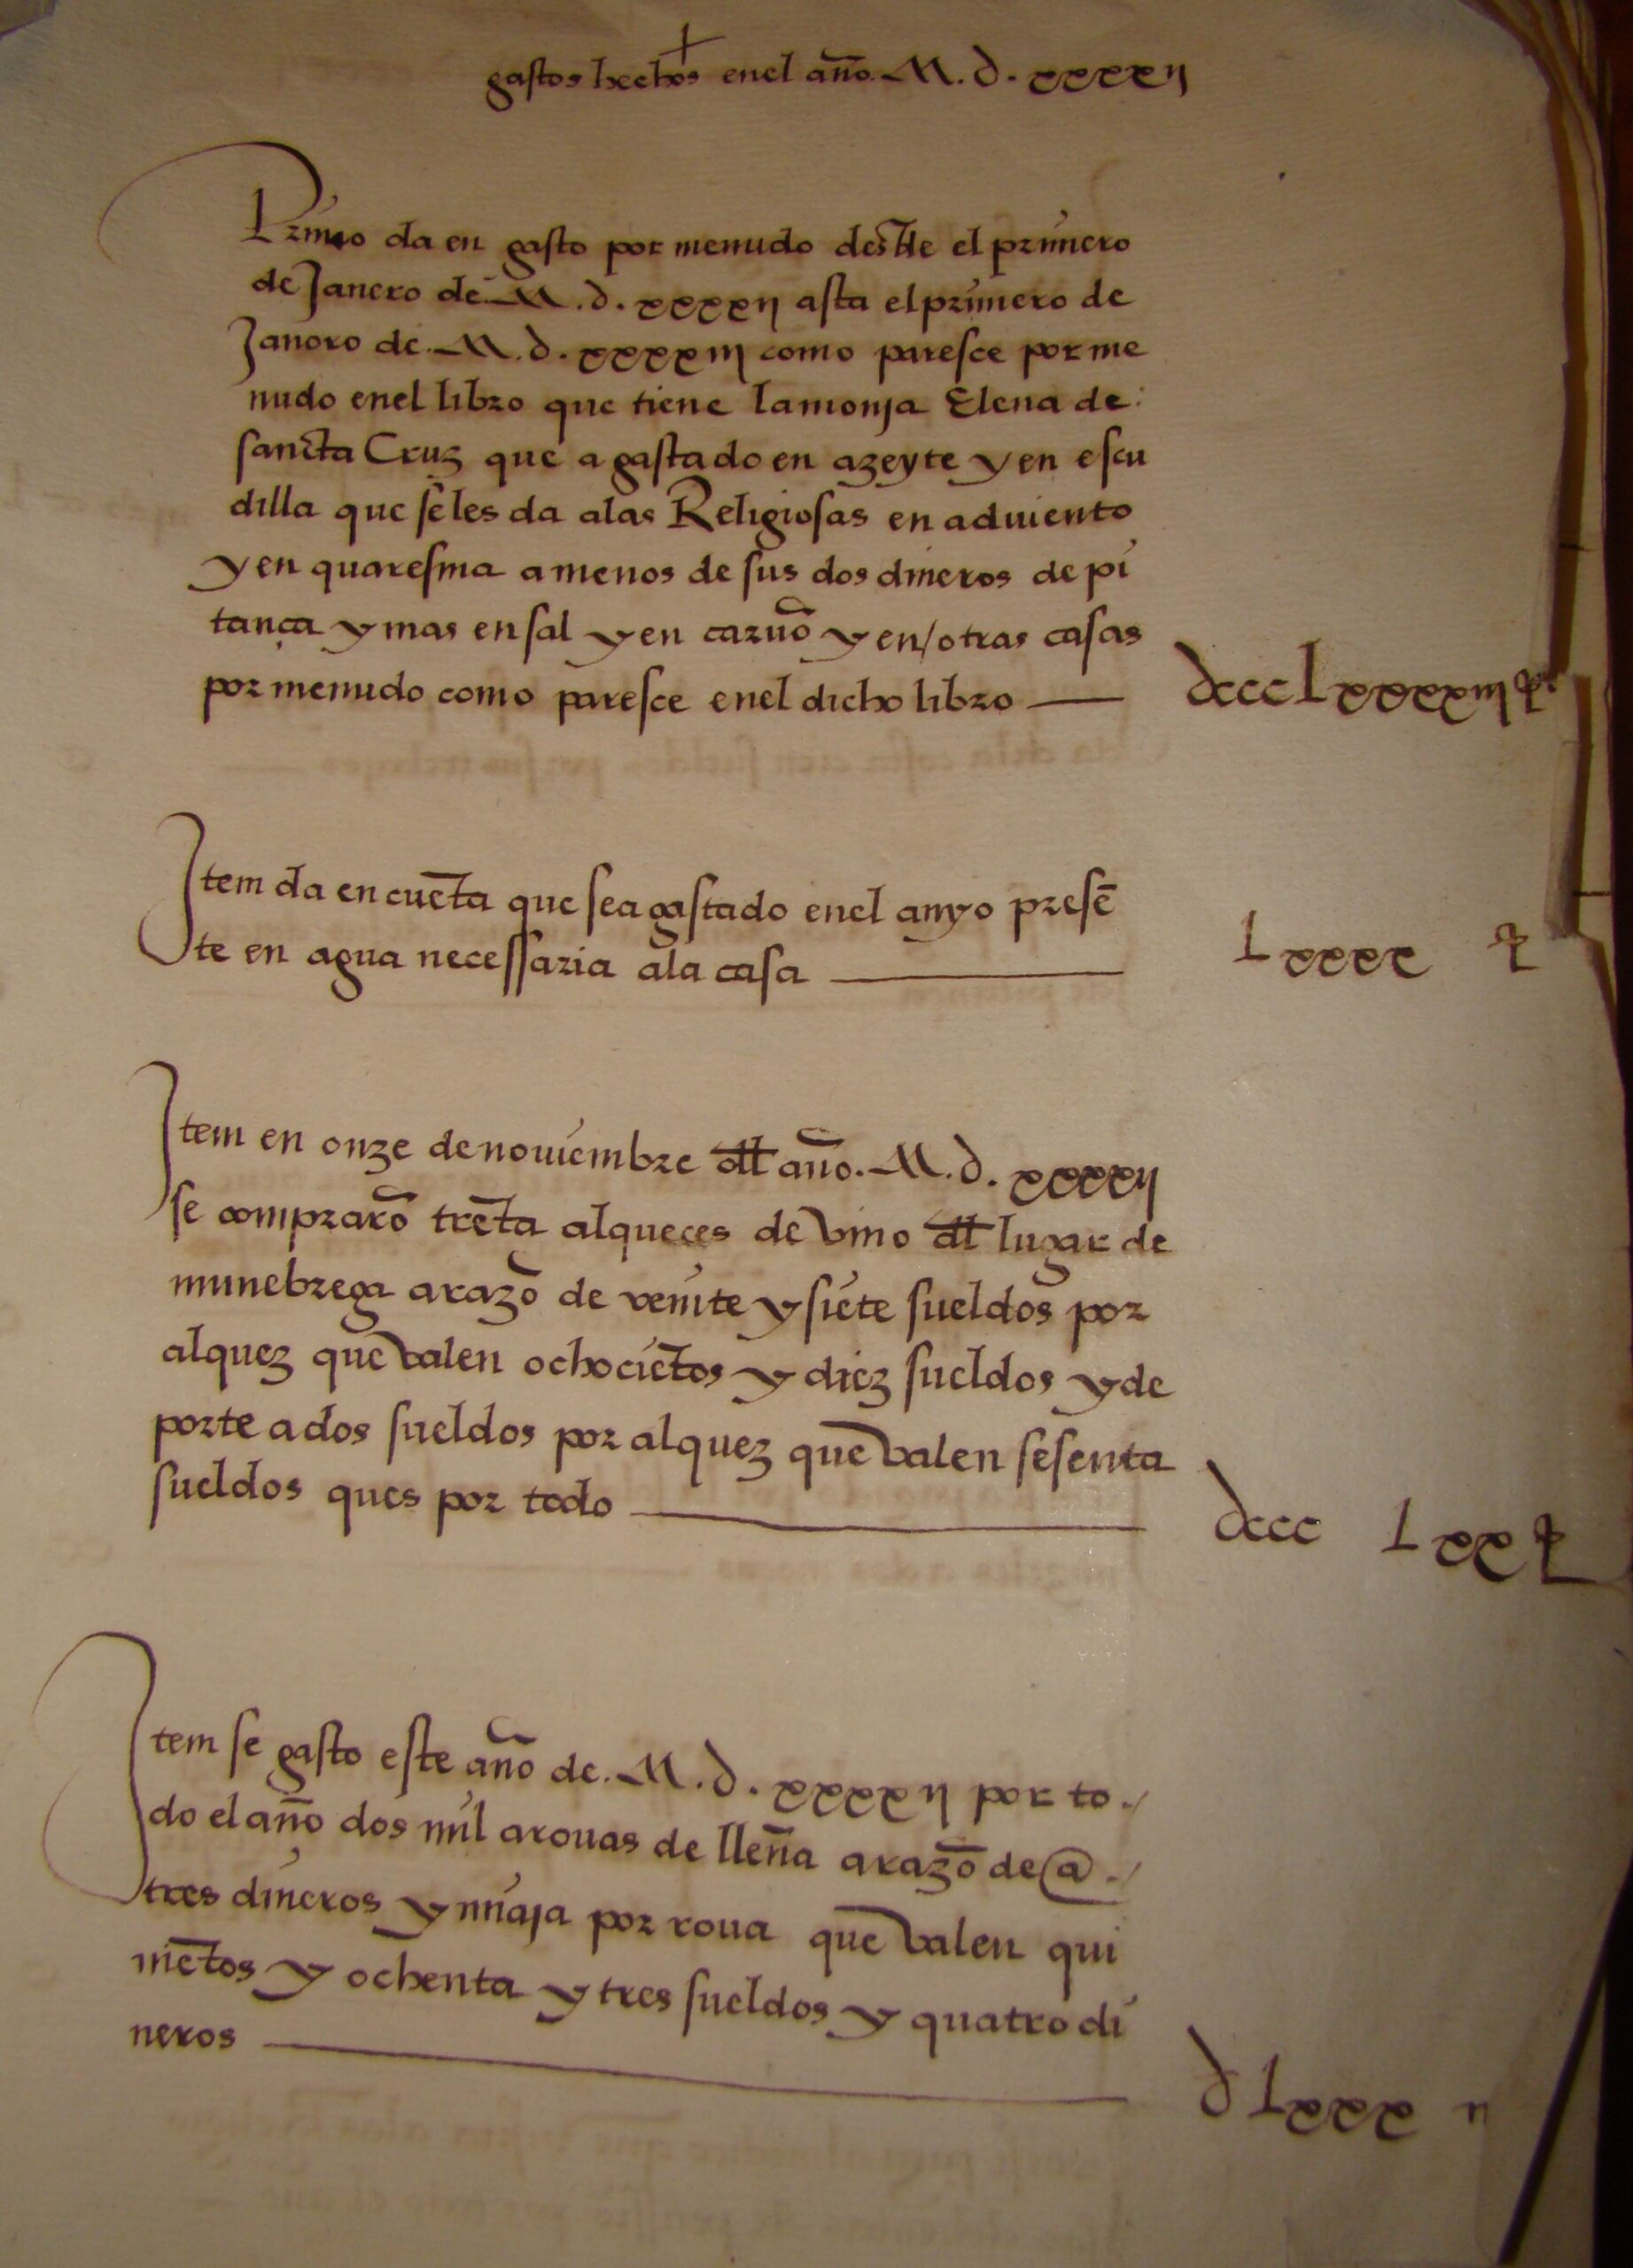 +
gastos hechos enel año. M. d. xxxxij
Primero da en gasto por menudo desde el primero
de Janero de M. d. xxxxij asta el primero de
Janero de M. d. xxxxiij como paresce por me
nudo enel libro que tiene la monja Elena de
sancta Cruz que a gastado en azeyte y en escu
dilla que se les da alas Religiosas en aduiento
y en quaresma a menos de sus dos dineros de pi
tança y mas en sal y en caruõ y en / otras casas
por menudo como paresce enel dicho libro — dccclxxxxiij
Item da en cuẽta que se a gastado enel anyo presẽ
te en agua necessaria ala casa — lxxxx
Item en onze de nouiembre dll año. M. d. xxxxij
se comprarõ trẽta alqueces de vino dll lugar de
munebrega a razõ de veinte y siete sueldos por
alquez que valen ochociẽtos y diez sueldos y de
porte a dos sueldos por alquez que valen sesenta
sueldos ques por todo — dccc lxx
Item se gasto este año de. M. d. xxxxij por to
do el año dos mil arouas de lleña a razõ de @
tres dineros y miaja por roua que valen qui
niẽtos y ochenta y tres sueldos y quatro di
neros — d lxxx